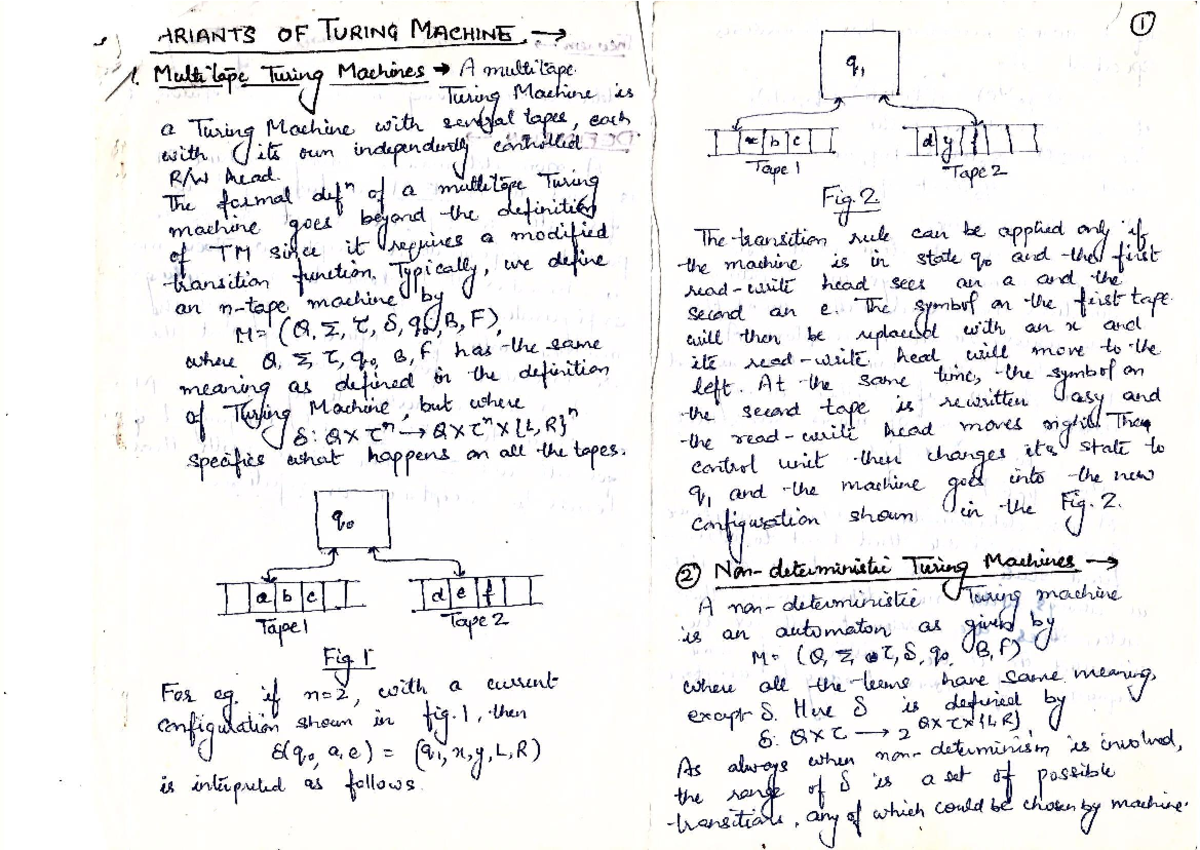 ARIANTS OF TURING MACHINE →
1. Multitape Turing Machines → A multitape
Turing Machine is
a Turing Machine with several tapes, each
with its own independently controlled
R/W head.
The formal defⁿ of a multitape Turing
machine goes beyond the definition
of TM since it requires a modified
transition function. Typically, we define
an n-tape machine by
M = (Q, Σ, τ, δ, q₀, B, F),
where Q, Σ, τ, q₀, B, F has the same
meaning as defined in the definition
of Turing Machine but where
δ: Q×τⁿ → Q×τⁿ×{L,R}ⁿ
specifies what happens on all the tapes.
q₀
a b c
d e f
Tape 1
Tape 2
Fig 1
For eg. if n=2, with a current
configuration shown in fig. 1, then
δ(q₀, a, e) = (q₁, x, y, L, R)
is interpreted as follows.
①
q₁
x b c
d y f
Tape 1
Tape 2
Fig. 2
The transition rule can be applied only if
the machine is in state q₀ and the first
read-write head sees an a and the
second an e. The symbol on the first tape
will then be replaced with an x and
its read-write head will move to the
left. At the same time, the symbol on
the second tape is rewritten as y and
the read-write head moves right. The
control unit then changes its state to
q₁ and the machine goes into the new
configuration shown in the Fig. 2.
② Non-deterministic Turing Machines →
A non-deterministic Turing machine
is an automaton as given by
M = (Q, Σ, τ, δ, q₀, B, F)
where all the terms have same meaning,
except δ. Here δ is defined by
δ: Q×τ → 2^Q×τ×{L,R}
As always when non-determinism is involved,
the range of δ is a set of possible
transitions, any of which could be chosen by machine.